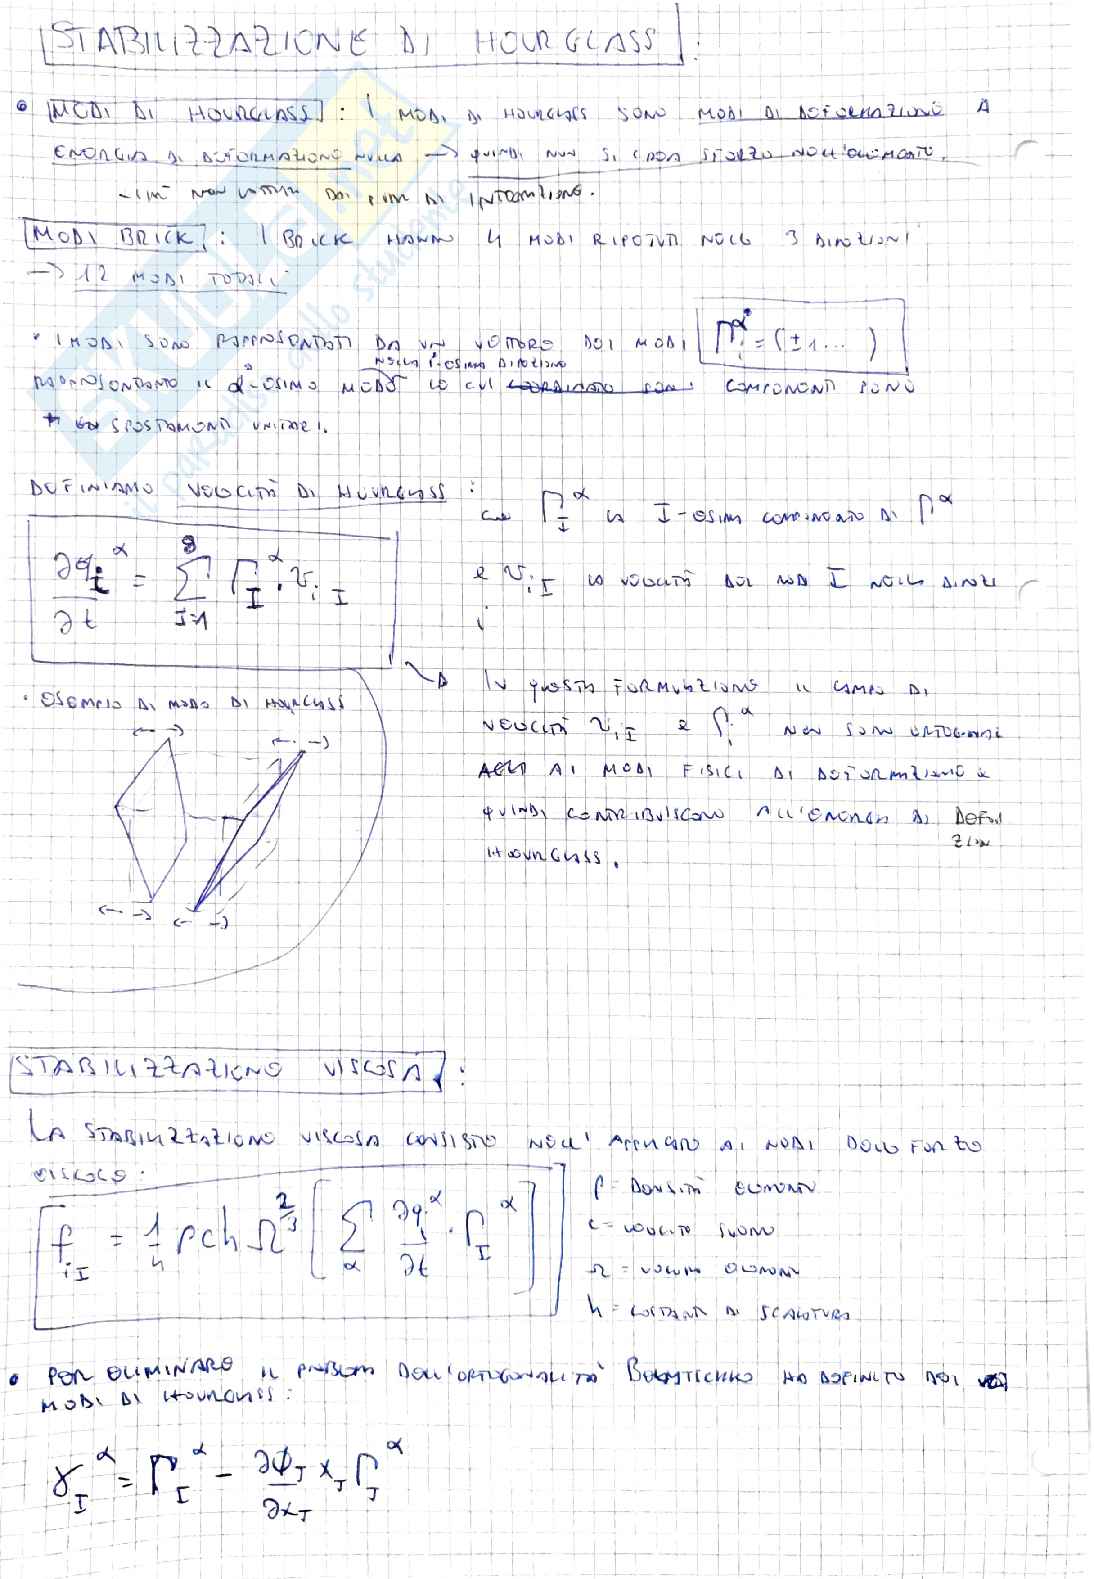 STABILIZZAZIONE DI HOURGLASS :
MODI DI HOURGLASS : I MODI DI HOURGLASS SONO MODI DI DEFORMAZIONE A
ENERGIA DI DEFORMAZIONE NULLA → QUINDI NON SI CREA SFORZO NELL'ELEMENTO.
DAI PUNTI DI INTEGRAZIONE.
MODI BRICK : I BRICK HANNO 4 MODI RIPETUTI NELLE 3 DIREZIONI
→ 12 MODI TOTALI
I MODI SONO RAPPRESENTATI DA UN VETTORE DEI MODI Γᵢ^α = (±1...)
NELLA i-ESIMA DIREZIONE
RAPPRESENTANTE IL α-ESIMO MODO LE CUI COORDINATE SONO COMPONENTI SONO
SPOSTAMENTI UNITARI.
DEFINIAMO VELOCITÀ DI HOURGLASS :
∂qᵢ^α / ∂t = Σ_{I=1}^{8} Γ_I^α · v_{iI}
Γ_I^α LA I-ESIMA COMPONENTE DI Γ^α
E v_{iI} LA VELOCITÀ DEL NODO I NELLA DIREZI
i
IN QUESTA FORMULAZIONE IL CAMPO DI
VELOCITÀ v_{iI} E Γᵢ^α NON SONO ORTOGONALI
AI MODI FISICI DI DEFORMAZIONE E
QUINDI CONTRIBUISCONO ALL'ENERGIA DI DEFOR
ZION
HOURGLASS.
ESEMPIO DI MODO DI HOURGLASS
STABILIZZAZIONE VISCOSA :
LA STABILIZZAZIONE VISCOSA CONSISTE NELL'APPLICARE AI NODI DELLE FORZE
VISCOSE :
f_{iI} = 1/4 ρ c h Ω^{2/3} [ Σ_α ∂qᵢ^α / ∂t · Γ_I^α ]
ρ = DENSITÀ ELEMENTO
c = VELOCITÀ SUONO
Ω = VOLUME ELEMENTO
h = COSTANTE DI SCALATURA
PER ELIMINARE IL PROBLEMA DELL'ORTOGONALITÀ BELYTSCHKO HA DEFINITO DEI
MODI DI HOURGLASS :
γ_I^α = Γ_I^α − ∂ϕ_J / ∂x_J x_J Γ_J^α